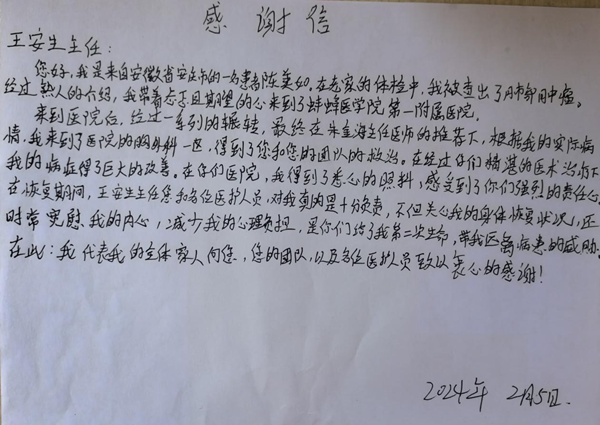 感谢信
王安生主任:
您好,我是来自安徽省安庆市的一名患者陈美如,在老家的体检中,我被查出了肺部肿瘤。
经过熟人的介绍,我带着忐忑且期望的心来到了蚌埠医学院第一附属医院。
来到医院后,经过一系列的辗转,最终在朱金海主任医师的推荐下,根据我的实际病
情,我来到了医院的胸外科一区,得到了您和您的团队的救治。在经过你们精湛的医术治疗下
我的病症得了巨大的改善。在你们医院,我得到了悉心的照料,感受到了你们强烈的责任心,
在恢复期间,王安生主任您和各位医护人员,对我真的是十分负责,不但关心我的身体恢复状况,还
时常安慰我的内心,减少我的心理负担,是你们给了我第二次生命,带我远离病患的威胁。
在此:我代表我的全体家人向您,您的团队,以及各位医护人员致以衷心的感谢!
2024年 2月5日.